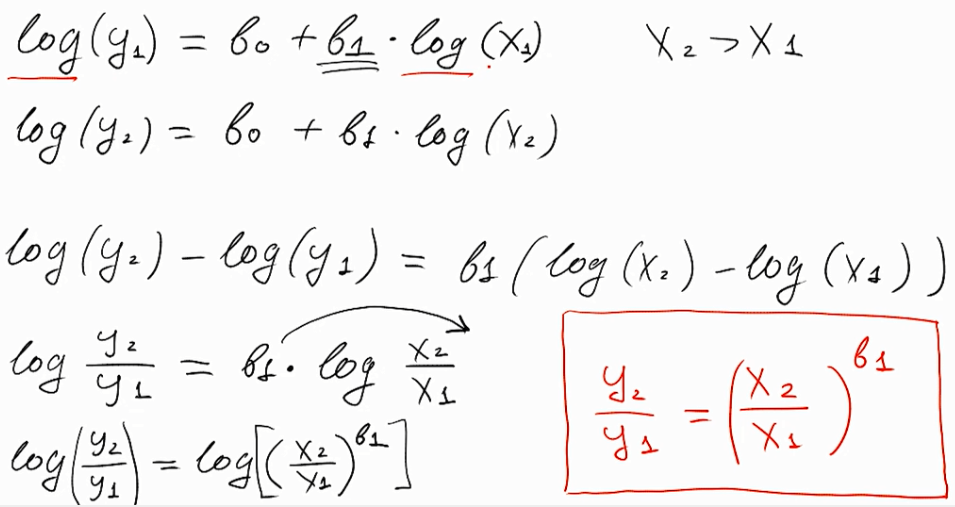 log(y₁) = b₀ + b₁ · log(x₁) x₂ > x₁
log(y₂) = b₀ + b₁ · log(x₂)
log(y₂) − log(y₁) = b₁(log(x₂) − log(x₁))
log y₂/y₁ = b₁ · log x₂/x₁
log(y₂/y₁) = log[(x₂/x₁)^b₁]
y₂/y₁ = (x₂/x₁)^b₁